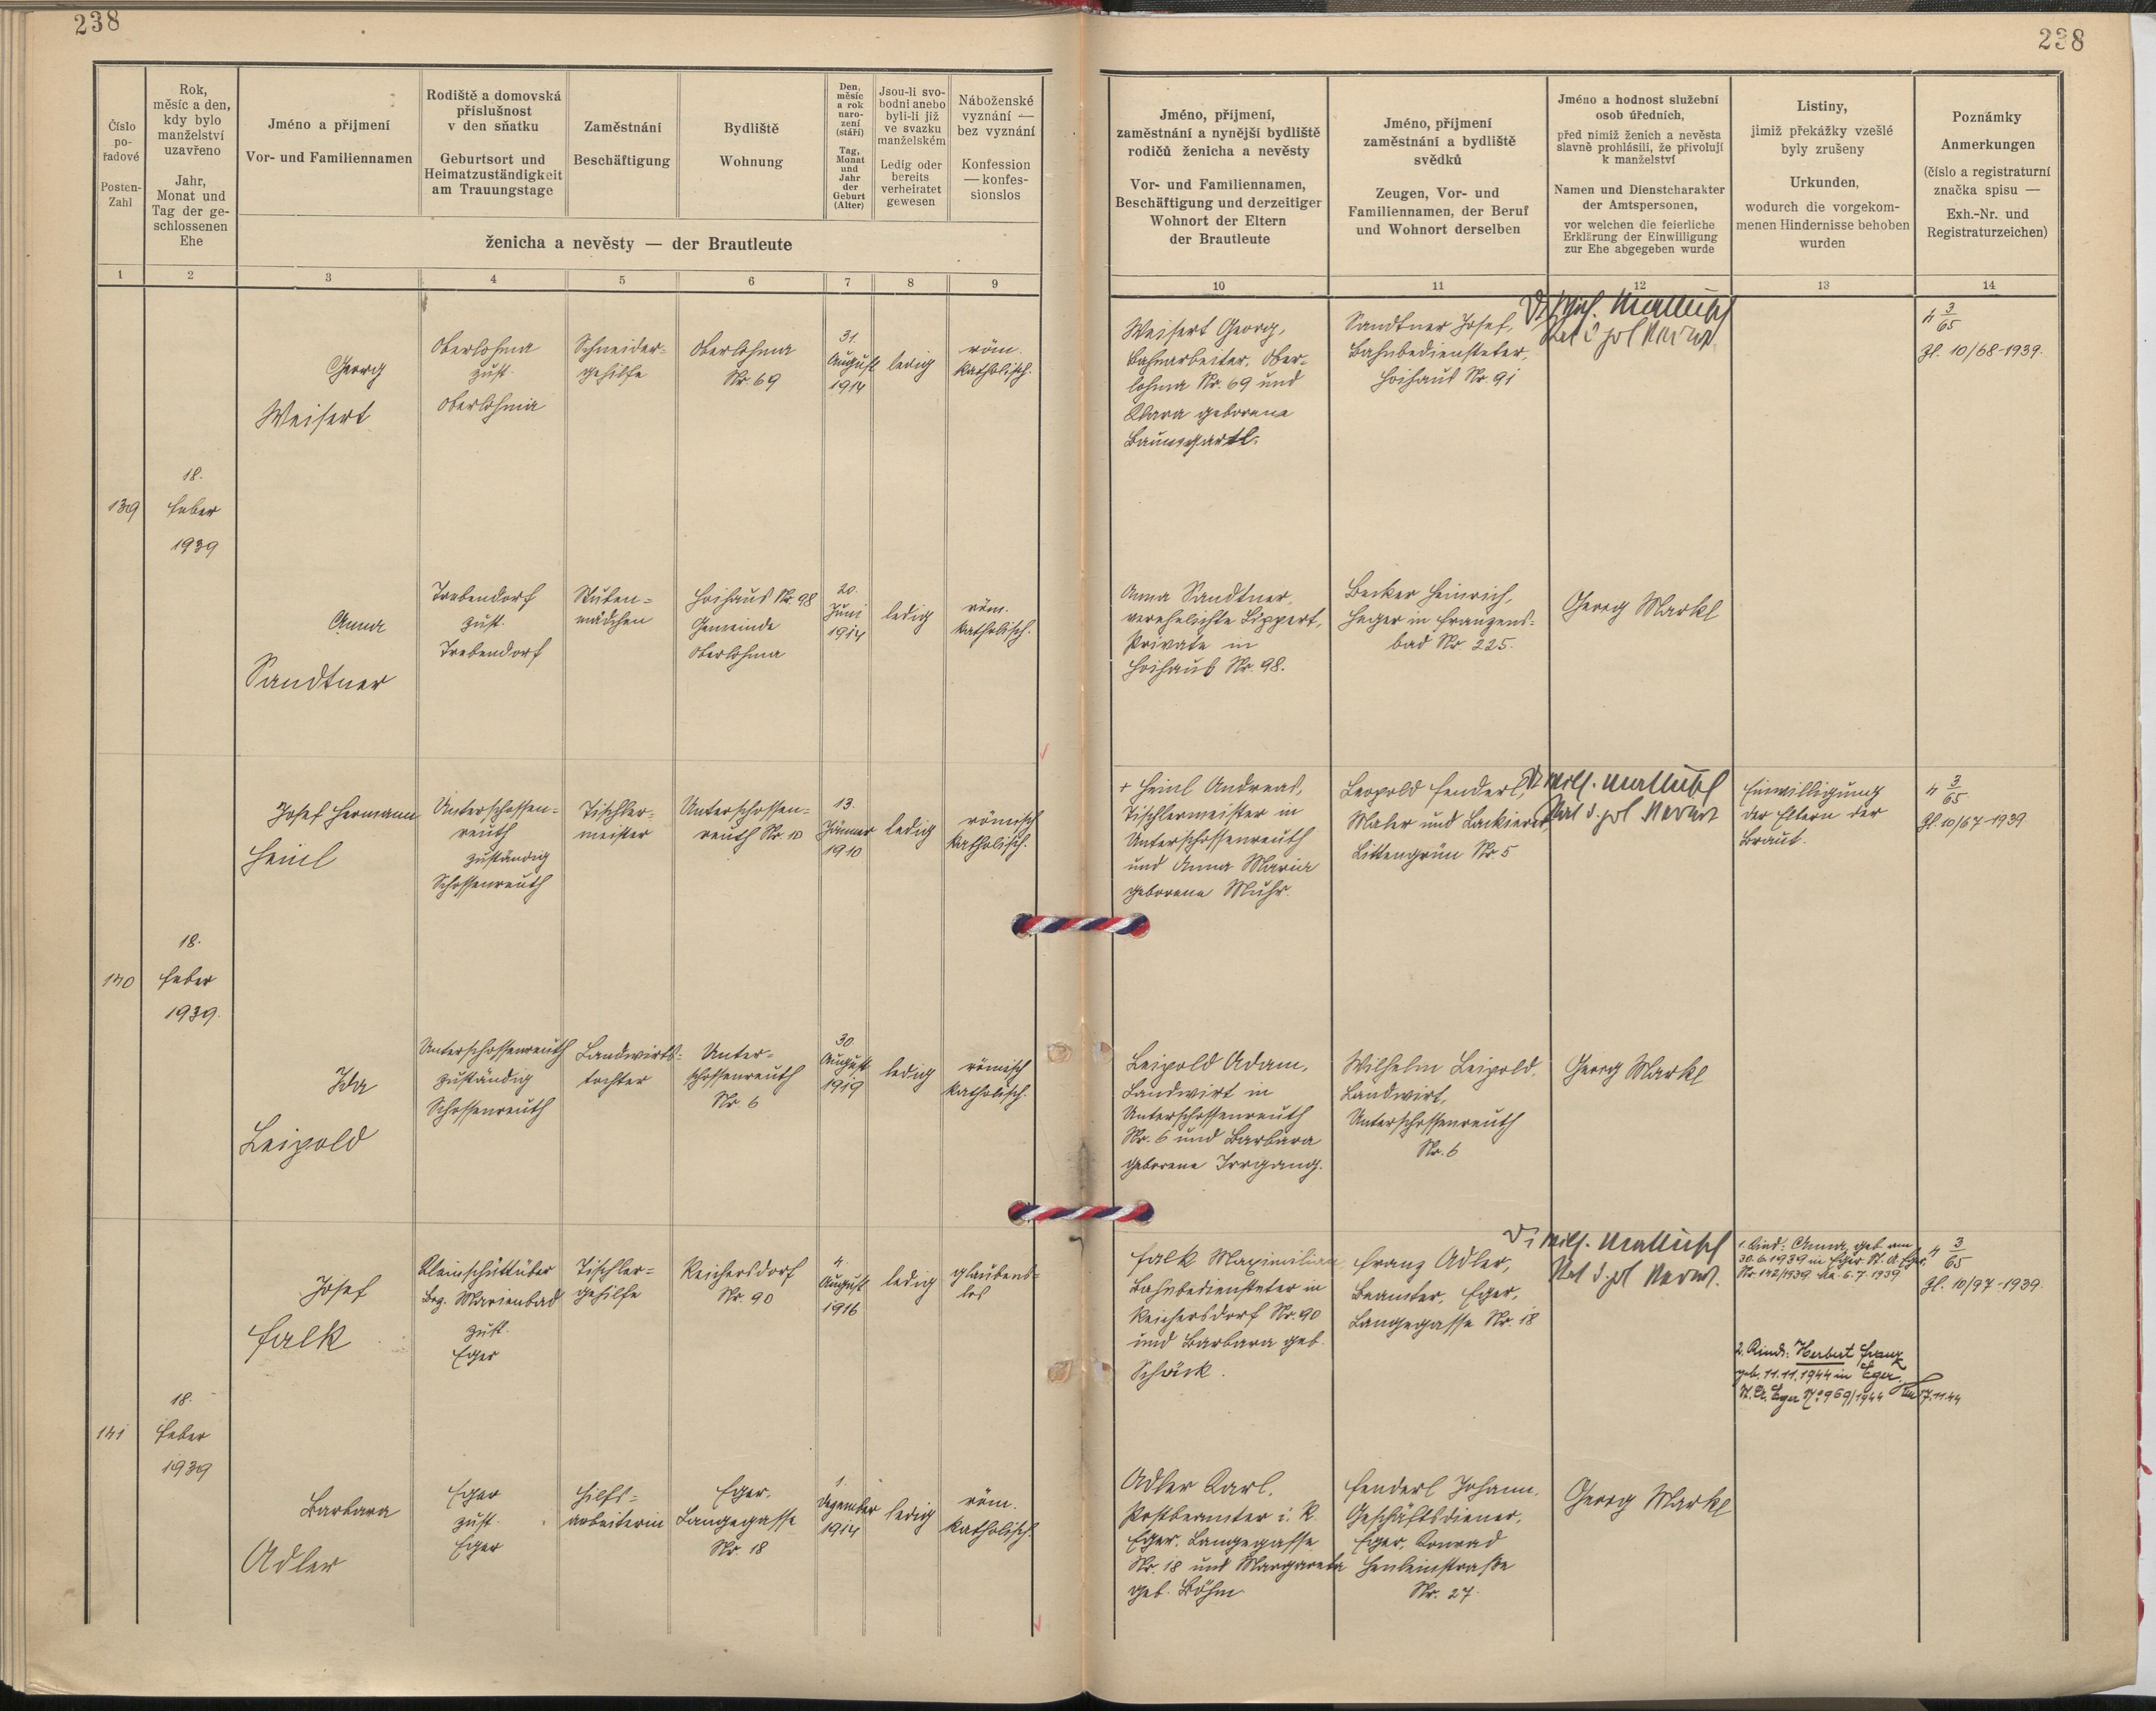 238
238
Číslo
po-
řadové
Posten-
Zahl
Rok,
měsíc a den,
kdy bylo
manželství
uzavřeno
Jahr,
Monat und
Tag der ge-
schlossenen
Ehe
Jméno a příjmení
Vor- und Familiennamen
Rodiště a domovská
příslušnost
v den sňatku
Geburtsort und
Heimatzuständigkeit
am Trauungstage
Zaměstnání
Beschäftigung
Bydliště
Wohnung
Den,
měsíc
a rok
naro-
zení
(stáří)
Tag,
Monat
und
Jahr
der
Geburt
(Alter)
Jsou-li svo-
bodni anebo
byli-li již
ve svazku
manželském
Ledig oder
bereits
verheiratet
gewesen
Náboženské
vyznání —
bez vyznání
Konfession
— konfes-
sionslos
ženicha a nevěsty — der Brautleute
Jméno, příjmení,
zaměstnání a nynější bydliště
rodičů ženicha a nevěsty
Vor- und Familiennamen,
Beschäftigung und derzeitiger
Wohnort der Eltern
der Brautleute
Jméno, příjmení
zaměstnání a bydliště
svědků
Zeugen, Vor- und
Familiennamen, der Beruf
und Wohnort derselben
Jméno a hodnost služební
osob úředních,
před nimiž ženich a nevěsta
slavně prohlásili, že přivolují
k manželství
Namen und Dienstcharakter
der Amtspersonen,
vor welchen die feierliche
Erklärung der Einwilligung
zur Ehe abgegeben wurde
Listiny,
jimiž překážky vzešlé
byly zrušeny
Urkunden,
wodurch die vorgekom-
menen Hindernisse behoben
wurden
Poznámky
Anmerkungen
(číslo a registraturní
značka spisu —
Exh.-Nr. und
Registraturzeichen)
1 2 3 4 5 6 7 8 9 10 11 12 13 14
139
18.
Feber
1939
Georg
Weisert
Oberlohma
zust.
Oberlohma
Schneider-
gehilfe
Oberlohma
Nr. 69
31.
August
1914
ledig
röm.
katholisch.
Weisert Georg,
Bahnarbeiter, Ober-
lohma Nr. 69 und
Klara geborene
Baumgartl.
Sandtner Josef,
Bahnbediensteter,
Hoihaus Nr. 91
4 3/65
Zl. 10/68-1939.
Anna
Sandtner
Trebendorf
zust.
Trebendorf
Stuben-
mädchen
Hoihaus Nr. 98
Gemeinde
Oberlohma
20.
Juni
1914
ledig
röm.
katholisch.
Anna Sandtner,
verehelichte Lippert,
Private in
Hoihaus Nr. 98.
Becker Heinrich,
Heger in Franzens-
bad Nr. 225.
Georg Markl
140
18.
Feber
1939.
Josef Hermann
Heinl
Unterschossen-
reuth
zuständig
Schossenreuth
Tischler-
meister
Unterschossen-
reuth Nr. 10
13.
Jänner
1910
ledig
römisch
katholisch.
+ Heinl Andreas,
Tischlermeister in
Unterschossenreuth
und Anna Maria
geborene Muhr.
Leopold Fenderl,
Maler und Lackierer,
Littengrün Nr. 5
Einwilligung
der Eltern der
Braut.
4 3/65.
Zl. 10/67-1939
Ida
Leipold
Unterschossenreuth
zuständig
Schossenreuth
Landwirts-
tochter
Unter-
schossenreuth
Nr. 6
30.
August
1919
ledig
römisch
katholisch.
Leipold Adam,
Landwirt in
Unterschossenreuth
Nr. 6 und Barbara
geborene Irrgang.
Wilhelm Leipold,
Landwirt,
Unterschossenreuth
Nr. 6
Georg Markl
141
18.
Feber
1939
Josef
Falk
Kleinschüttüber
Bez. Marienbad
zust.
Eger
Tischler-
gehilfe
Reichersdorf
Nr. 90
4.
August
1916
ledig
glaubens-
los
Falk Maximilian
Bahnbediensteter in
Reichersdorf Nr. 90
und Barbara geb.
Schäck.
Franz Adler,
Beamter, Eger,
Langegasse Nr. 18
1. Kind: Anna, geb. am
30.6.1939 in Eger St. A. Eger,
Nr. 142/1939 6.7.1939
2. Kind: Herbert Franz
geb. 11.11.1944 in Eger.
St. A. Eger No 969/1944 17.11.44
4 3/65
Zl. 10/97-1939.
Barbara
Adler
Eger
zust.
Eger
Hilfs-
arbeiterin
Eger,
Langegasse
Nr. 18
1.
Dezember
1914
ledig
röm.
katholisch.
Adler Karl,
Postbeamter i. R.
Eger, Langegasse
Nr. 18 und Margareta
geb. Böhm.
Fenderl Johann,
Geschäftsdiener,
Eger, Konrad
Henleinstraße
Nr. 27.
Georg Markl